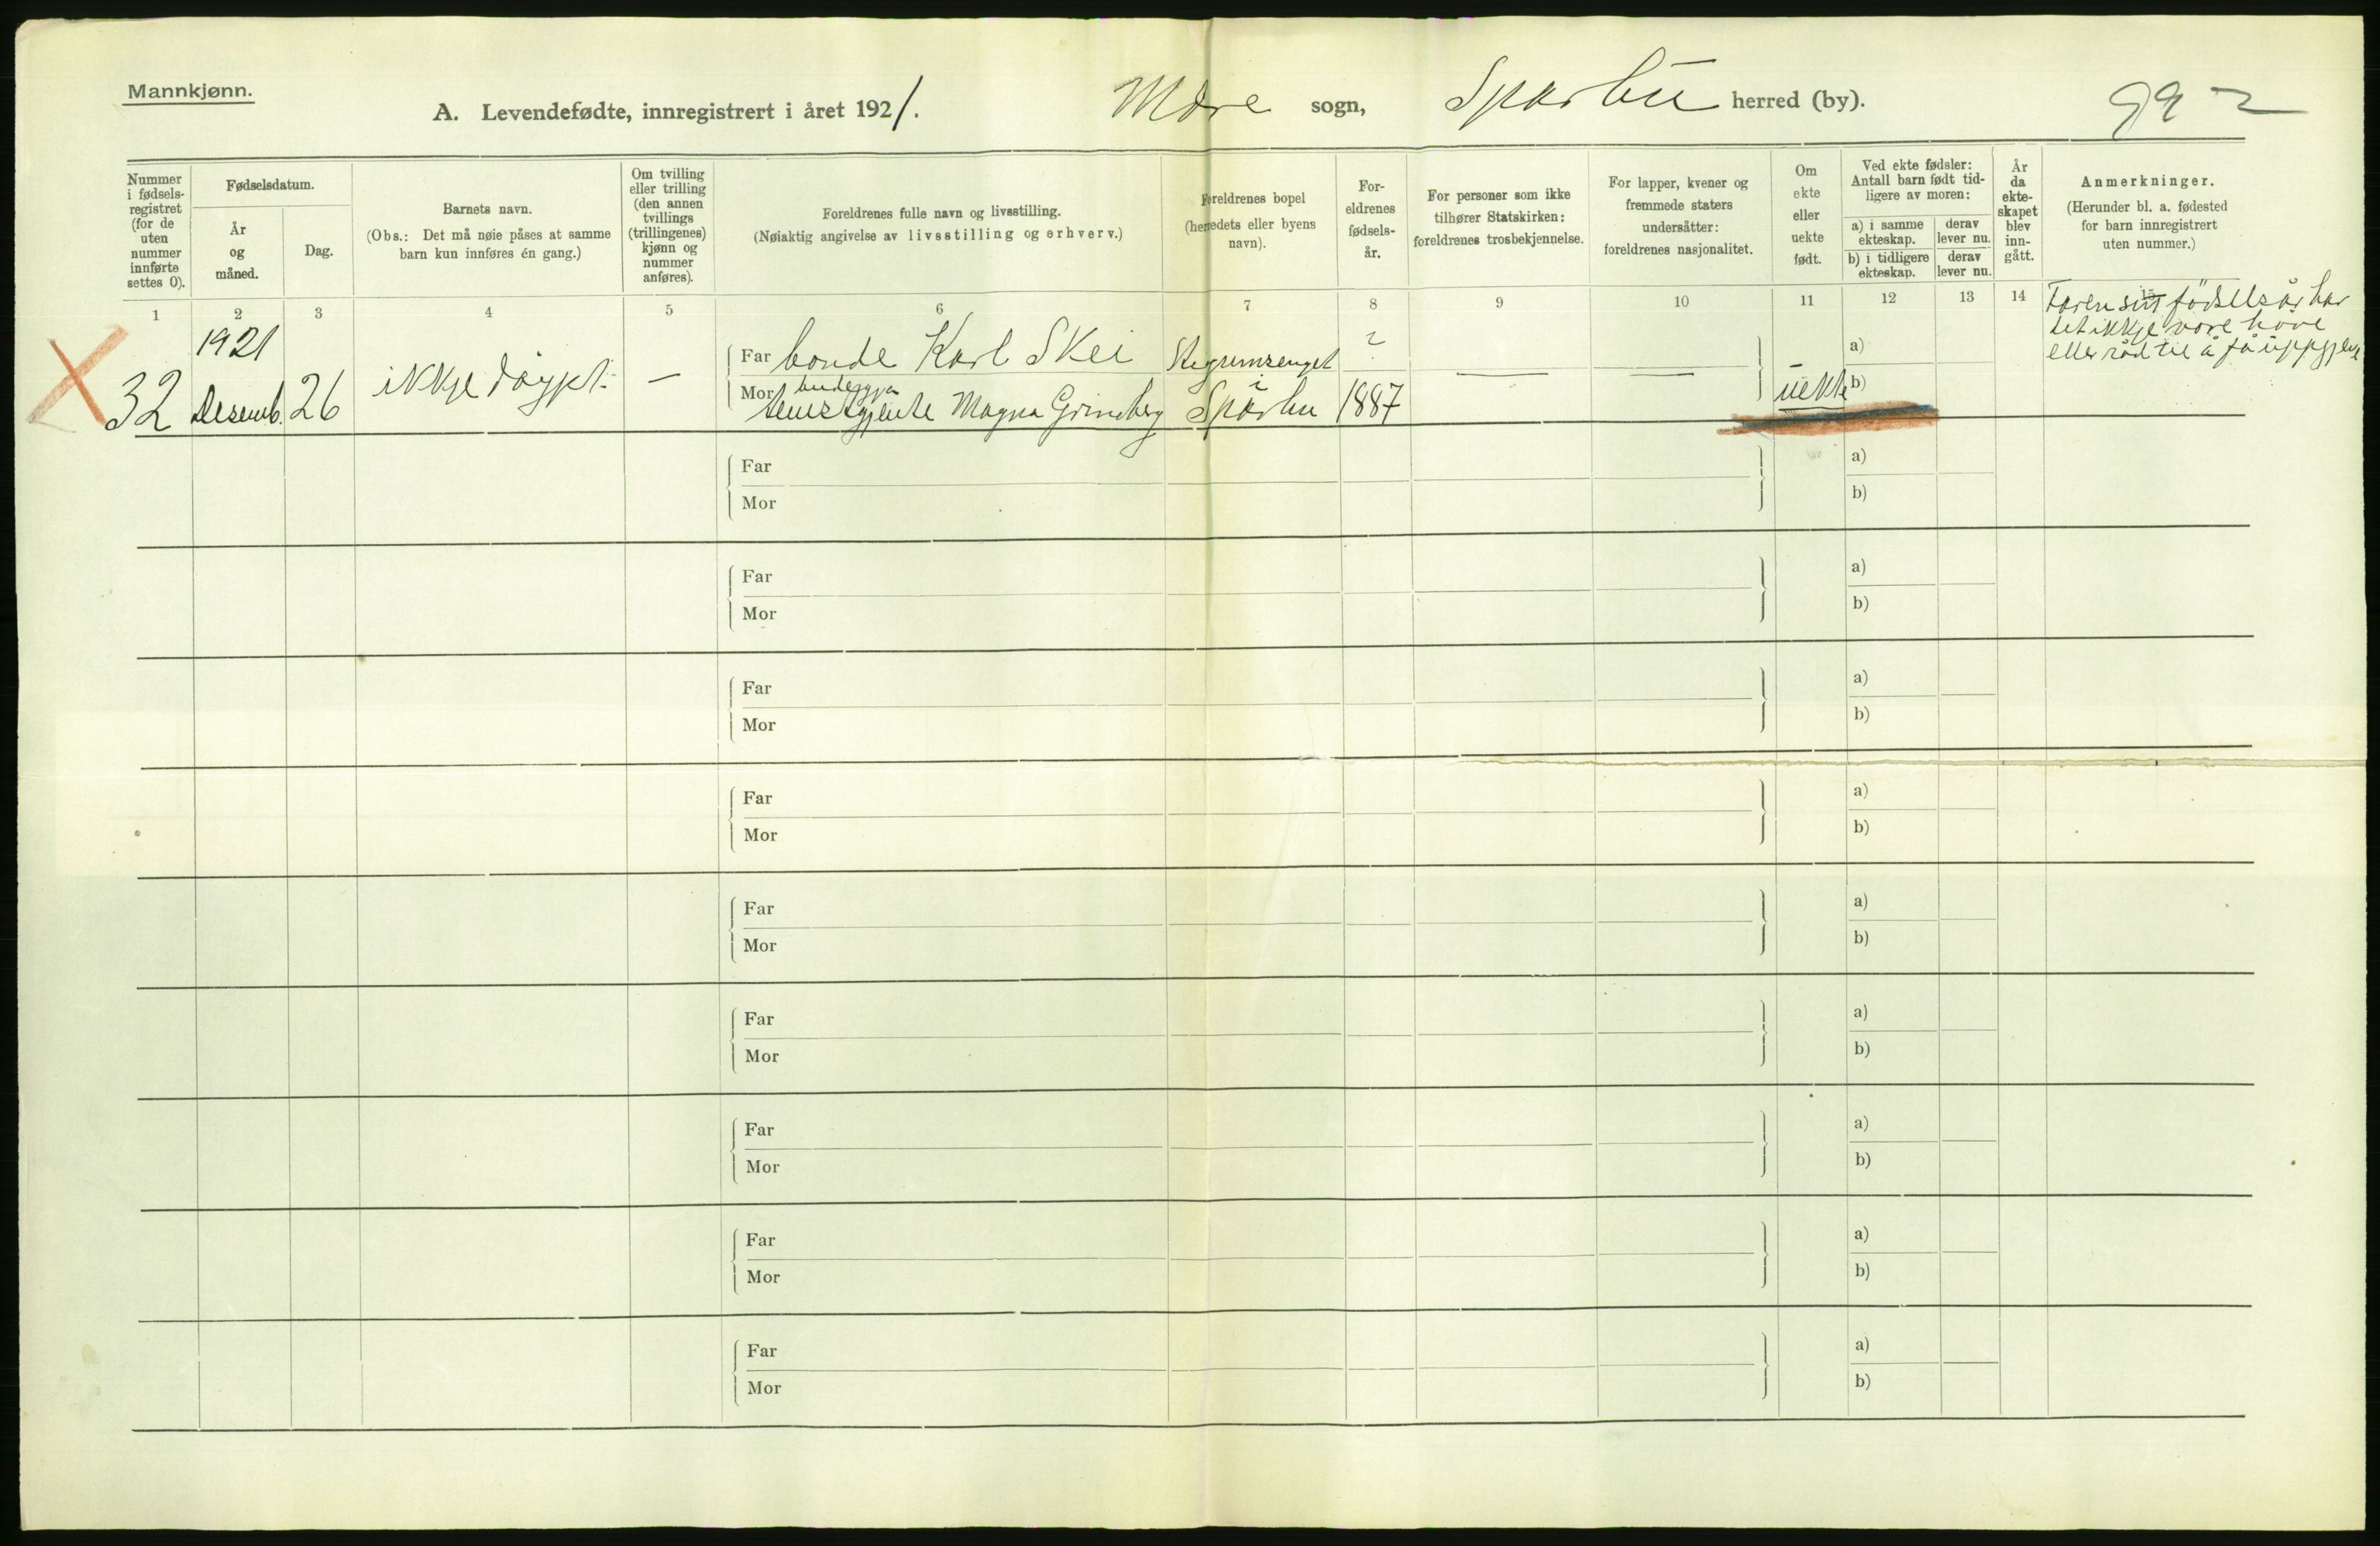 Mannkjønn.
A. Levendefødte, innregistrert i året 1921. Mære sogn, Sparbu herred (by). 992
Nummer i fødsels- registret (for de uten nummer innførte settes 0).
Fødselsdatum.
År og måned.
Dag.
Barnets navn.
(Obs.: Det må nøie påses at samme
barn kun innføres én gang.)
Om tvilling
eller trilling
(den annen
tvillings
(trillingenes)
kjønn og
nummer
anføres).
Foreldrenes fulle navn og livsstilling.
(Nøiaktig angivelse av livsstilling og erhverv.)
Foreldrenes bopel
(herredets eller byens
navn).
For-
eldrenes
fødsels-
år.
For personer som ikke
tilhører Statskirken:
foreldrenes trosbekjennelse.
For lapper, kvener og
fremmede staters
undersåtter:
foreldrenes nasjonalitet.
Om
ekte
eller
uekte
født.
Ved ekte fødsler:
Antall barn født tid-
ligere av moren:
a) i samme
ekteskap.
derav
lever nu.
b) i tidligere
ekteskap.
derav
lever nu.
År
da
ekte-
skapet
blev
inn-
gått.
Anmerkninger.
(Herunder bl. a. fødested
for barn innregistrert
uten nummer.)
1 2 3 4 5 6 7 8 9 10 11 12 13 14 15
32 1921 Desemb. 26 ikkje døypt. —
Far bonde Karl Skei ?
Mor budeggja Magna Grindberg i Sparbu 1887
— — uekte
a)
b)
Faren sitt fødselsår har
det ikkje vore høve
eller råd til å få uppgjeve
Far a)
Mor b)
Far a)
Mor b)
Far a)
Mor b)
Far a)
Mor b)
Far a)
Mor b)
Far a)
Mor b)
Far a)
Mor b)
Far a)
Mor b)
Far a)
Mor b)